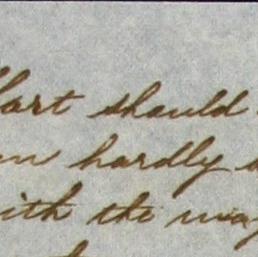 Hart should
hardly
with the way